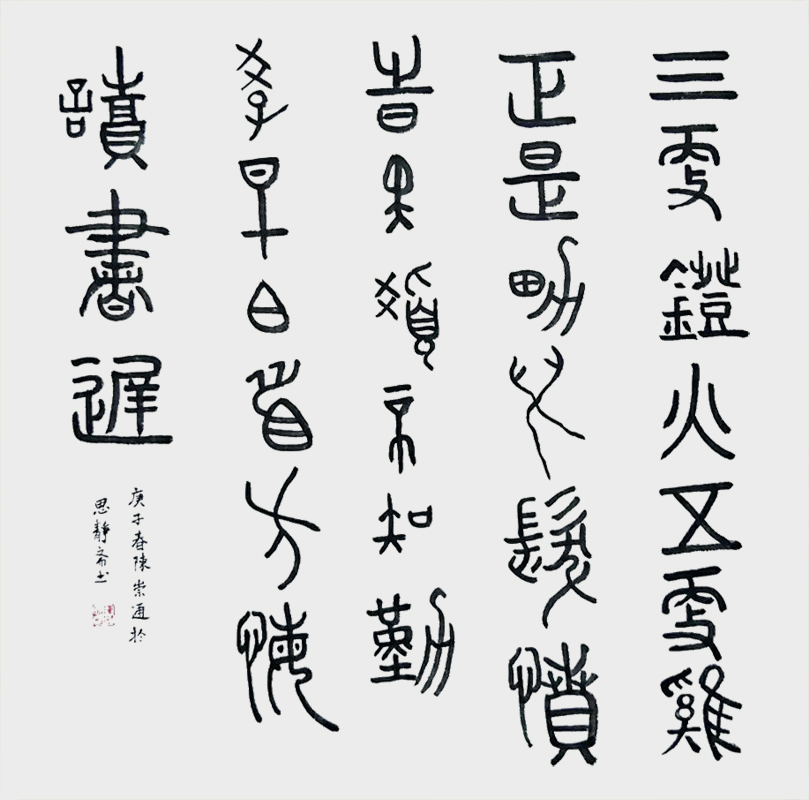 三更鐙火五更雞
正是男兒髮憤
旹黑髮不知勤
學早白首方悔
讀書遲
庚子春陳崇通於
思靜斋书